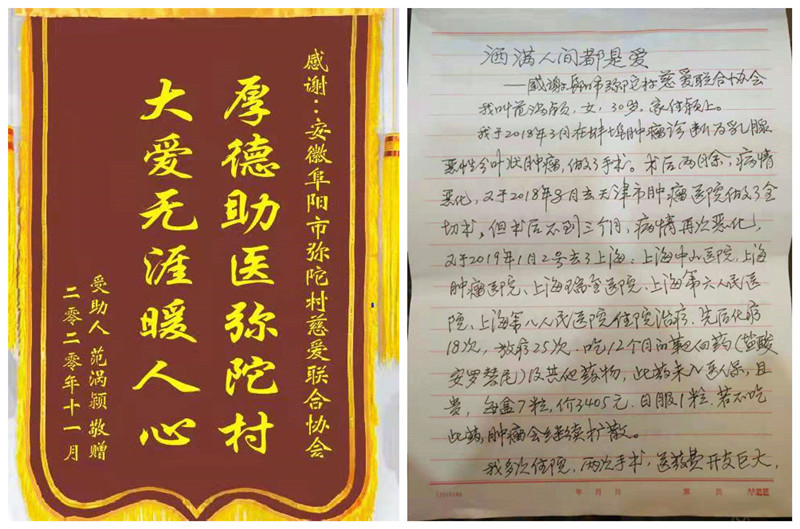 感谢：安徽阜阳市弥陀村慈爱联合协会
厚德助医弥陀村
大爱无涯暖人心
受助人 范涡颖敬赠
二零二零年十一月
洒满人间都是爱
——感谢阜阳市弥陀村慈爱联合协会
我叫范涡颖，女，30岁，家住颍上。
我于2018年3月在蚌埠肿瘤诊断为乳腺
恶性分叶状肿瘤，做了手术。术后两月余，病情
恶化，又于2018年8月去天津市肿瘤医院做了全
切术，但术后不到三个月，病情再次恶化，
又于2019年1月2号去了上海：上海中山医院、上海
肿瘤医院、上海瑞金医院、上海第六人民医
院、上海第八人民医院住院治疗，先后化疗
18次，放疗25次，吃12个月的靶向药（盐酸
安罗替尼）及其他药物，此药未入医保，且
贵，每盒7粒，价3405元，日服1粒，若不吃
此药，肿瘤会继续扩散。
我多次住院，两次手术，医药费开支巨大，
年 月 日 第 页